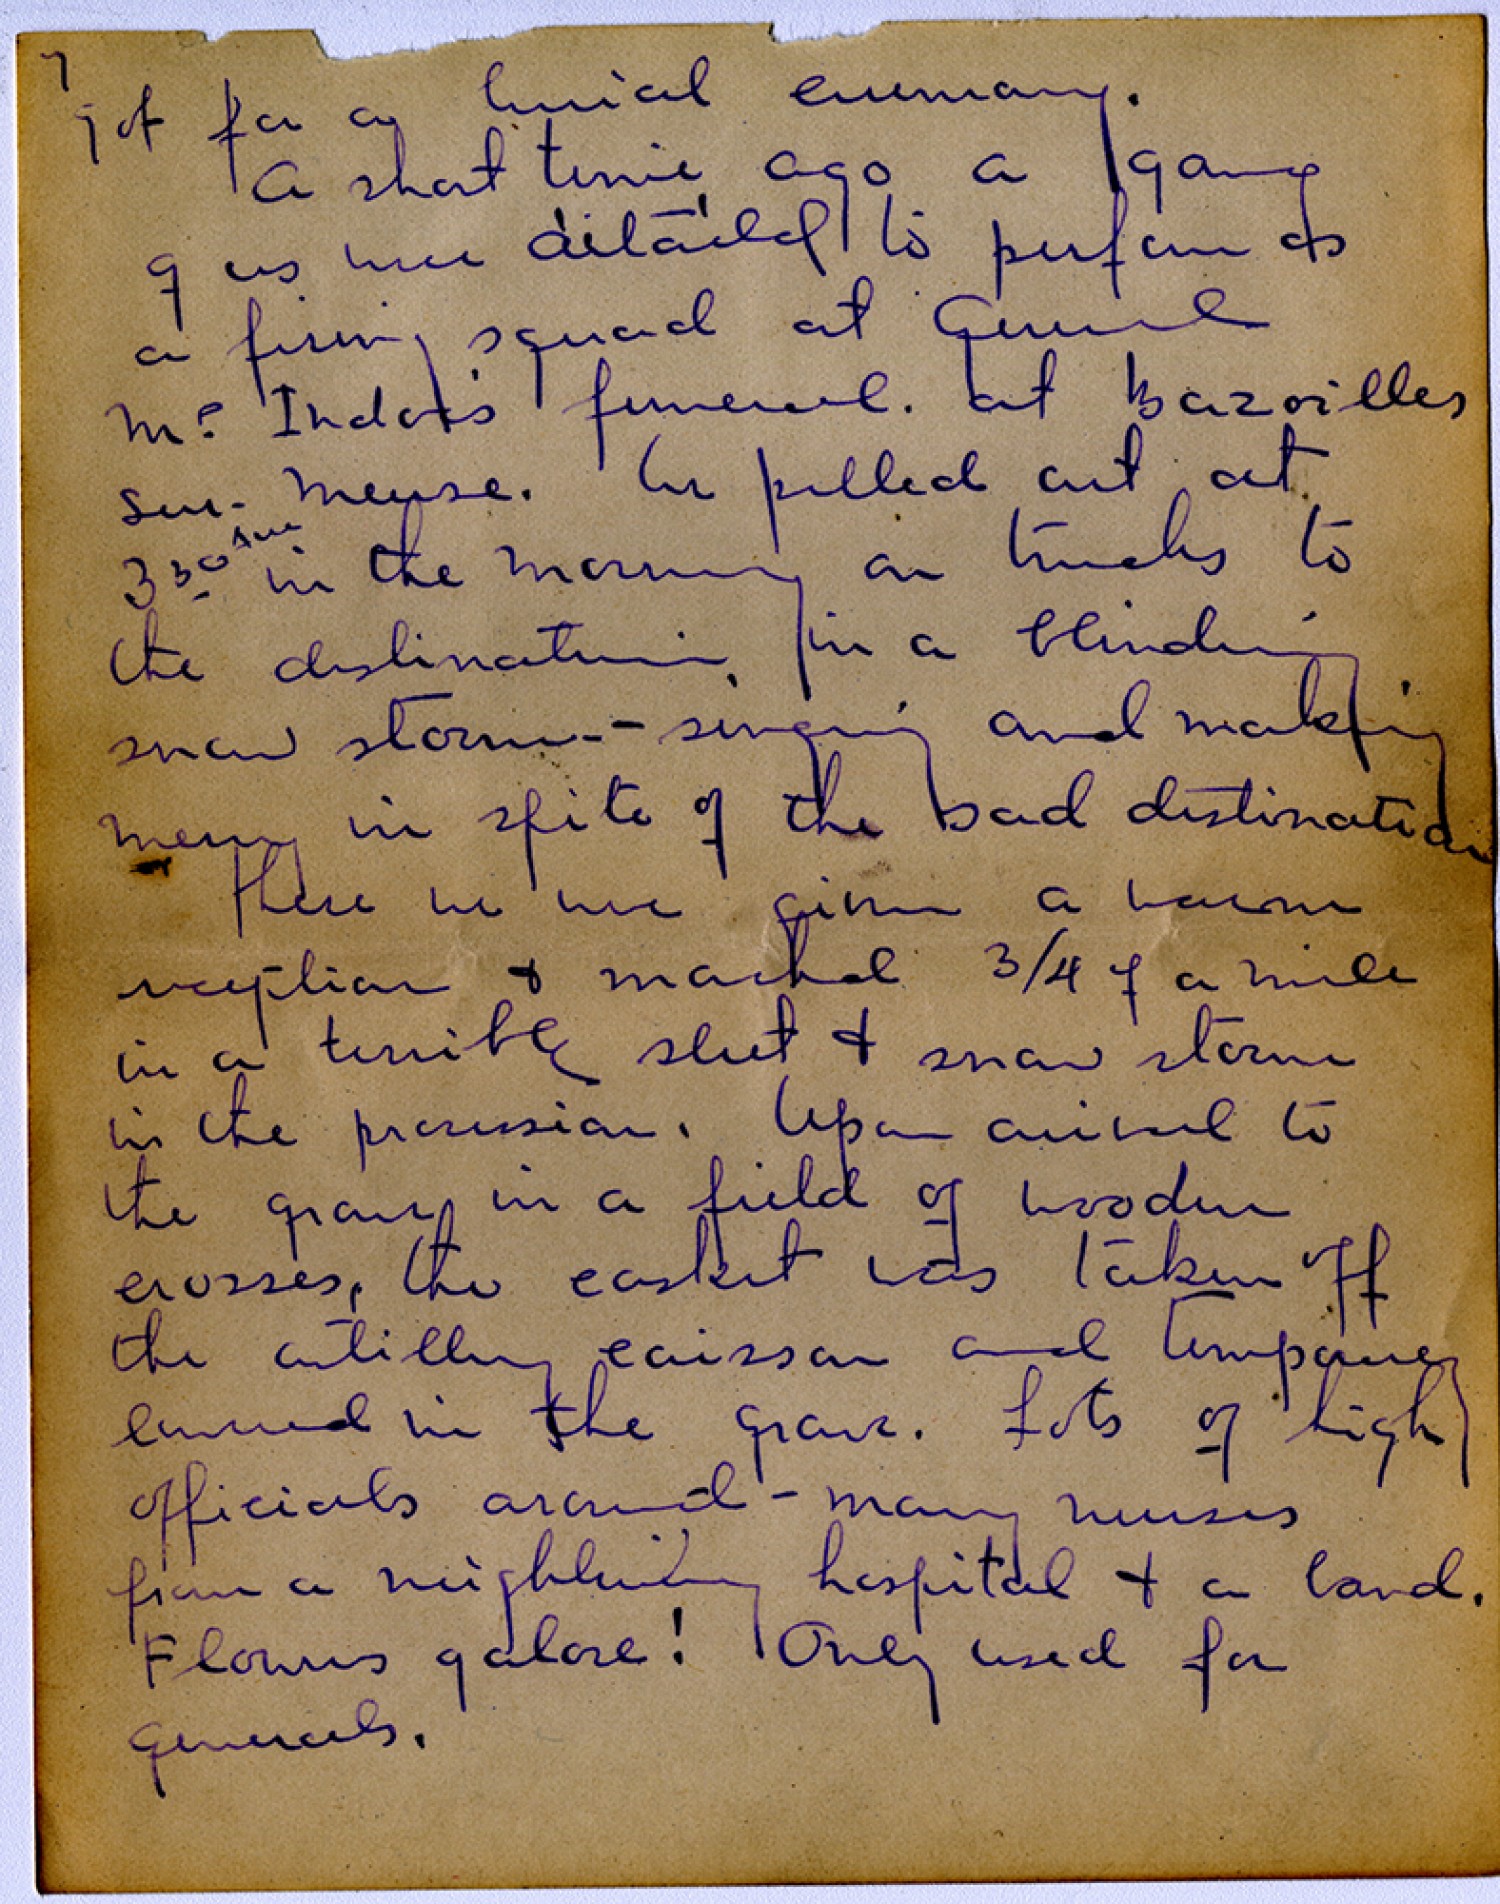 7
got for a burial ceremony.
A short time ago a gang
of us were detailed to perform as
a firing squad at General
Mc Indoe's funeral. at Bazoilles
sur- Meuse. We pulled out at
3 30 am in the morning on trucks to
the destination, in a blinding
snow storm - singing and making
merry in spite of the bad destination
There we were given a warm
reception & marched 3/4 of a mile
in a terrible sleet & snow storm
in the procession. Upon arrival to
the grave in a field of wooden
crosses, the casket was taken off
the artillery caisson and temporary
in the grave. Lots of high
officials around - many nurses
from a neighboring hospital & a band.
Flowers galore! Only used for
generals.